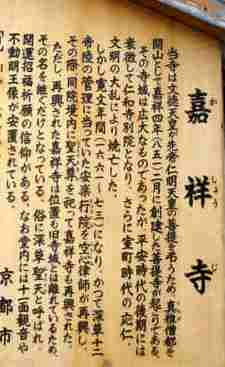 嘉祥寺
かしょうじ
当寺は文徳天皇が先帝仁明天皇の菩提を弔うため、真雅僧都を
開山として嘉祥四年(八五一)二月に創建した菩提寺が起りである。
その寺域は広大なものであったが、平安時代の後期には
衰微して仁和寺別院となり、さらに室町時代の応仁、
文明の大乱により焼亡した。
しかし寛文年間(一六六一~七三)になり、かつて深草十二
帝陵の管理に当っていた安楽行院を空心律師が再興し、
その際、同院境内に聖天尊を祀って嘉祥寺も再興した。
ただし、再興された嘉祥寺は位置も旧寺域とは離れているため、
その名を継ぐだけとなっている。俗に深草聖天と呼ばれ、
開運招福祈願の信仰がある。なお堂内には十一面観音や
不動明王像が安置されている。
京都市